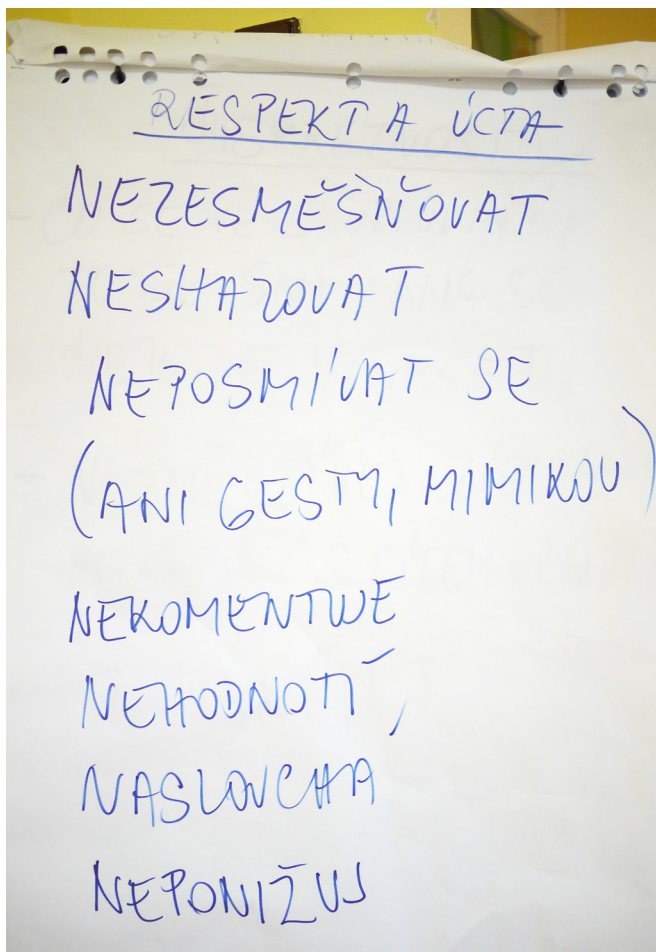 RESPEKT A ÚCTA
NEZESMĚŠŇOVAT
NESHAZOVAT
NEPOSMÍVAT SE
(ANI GESTY, MIMIKOU)
NEKOMENTUJE
NEHODNOTÍ,
NASLOUCHÁ
NEPONIŽUJ